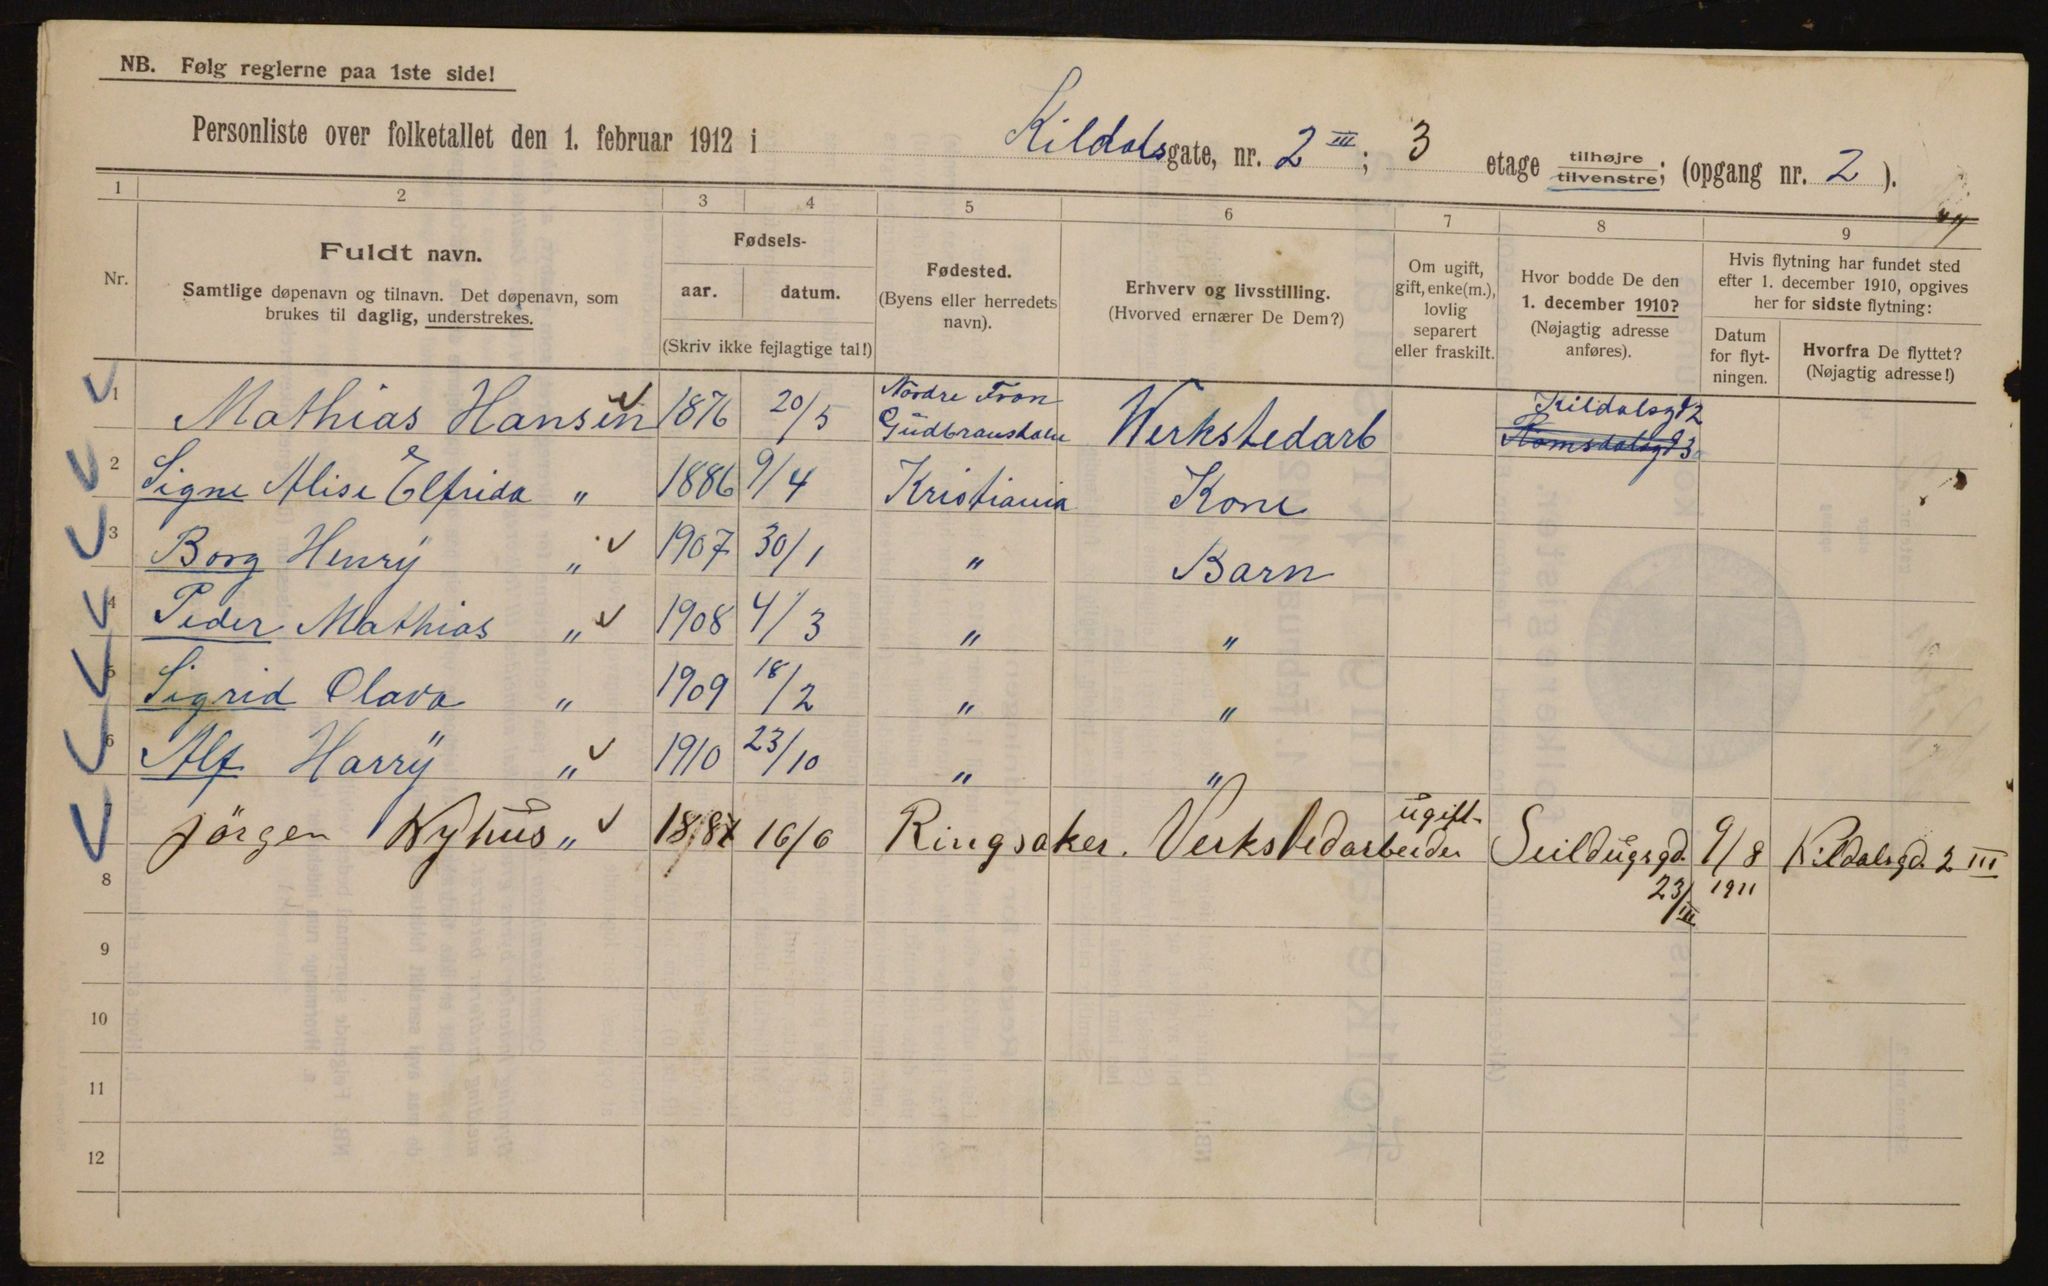 NB. Følg reglerne paa 1ste side!
Personliste over folketallet den 1. februar 1912 i Kildalsgate, nr. 2 III; 3 etage tilhøjre tilvenstre; (opgang nr. 2).
1 2 3 4 5 6 7 8 9
Nr.
Fuldt navn.
Samtlige døpenavn og tilnavn. Det døpenavn, som
brukes til daglig, understrekes.
Fødsels-
aar. datum.
(Skriv ikke fejlagtige tal!)
Fødested.
(Byens eller herredets
navn).
Erhverv og livsstilling.
(Hvorved ernærer De Dem?)
Om ugift,
gift, enke(m.),
lovlig
separert
eller fraskilt.
Hvor bodde De den
1. december 1910?
(Nøjagtig adresse
anføres).
Hvis flytning har fundet sted
efter 1. december 1910, opgives
her for sidste flytning:
Datum
for flyt-
ningen.
Hvorfra De flyttet?
(Nøjagtig adresse!)
1 Mathias Hansen 1876 20/5 Nordre Fron Werkstedarb Kildalsgd 2
Romsdalsgd 3
2 Signe Alise Elfrida " 1886 9/4 Kristiania Kone
3 Borg Henry " 1907 30/1 " Barn
4 Peder Mathias " 1908 4/3 " "
5 Sigrid Olava " 1909 18/2 " "
6 Alf Harry " 1910 23/10 " "
7 Jörgen Nyhus " 1887 16/6 Ringsaker. Verkstedarbeider ugift Seildugsgd. 23/III 9/8 1911 Kildalsgd. 2 III
8
9
10
11
12